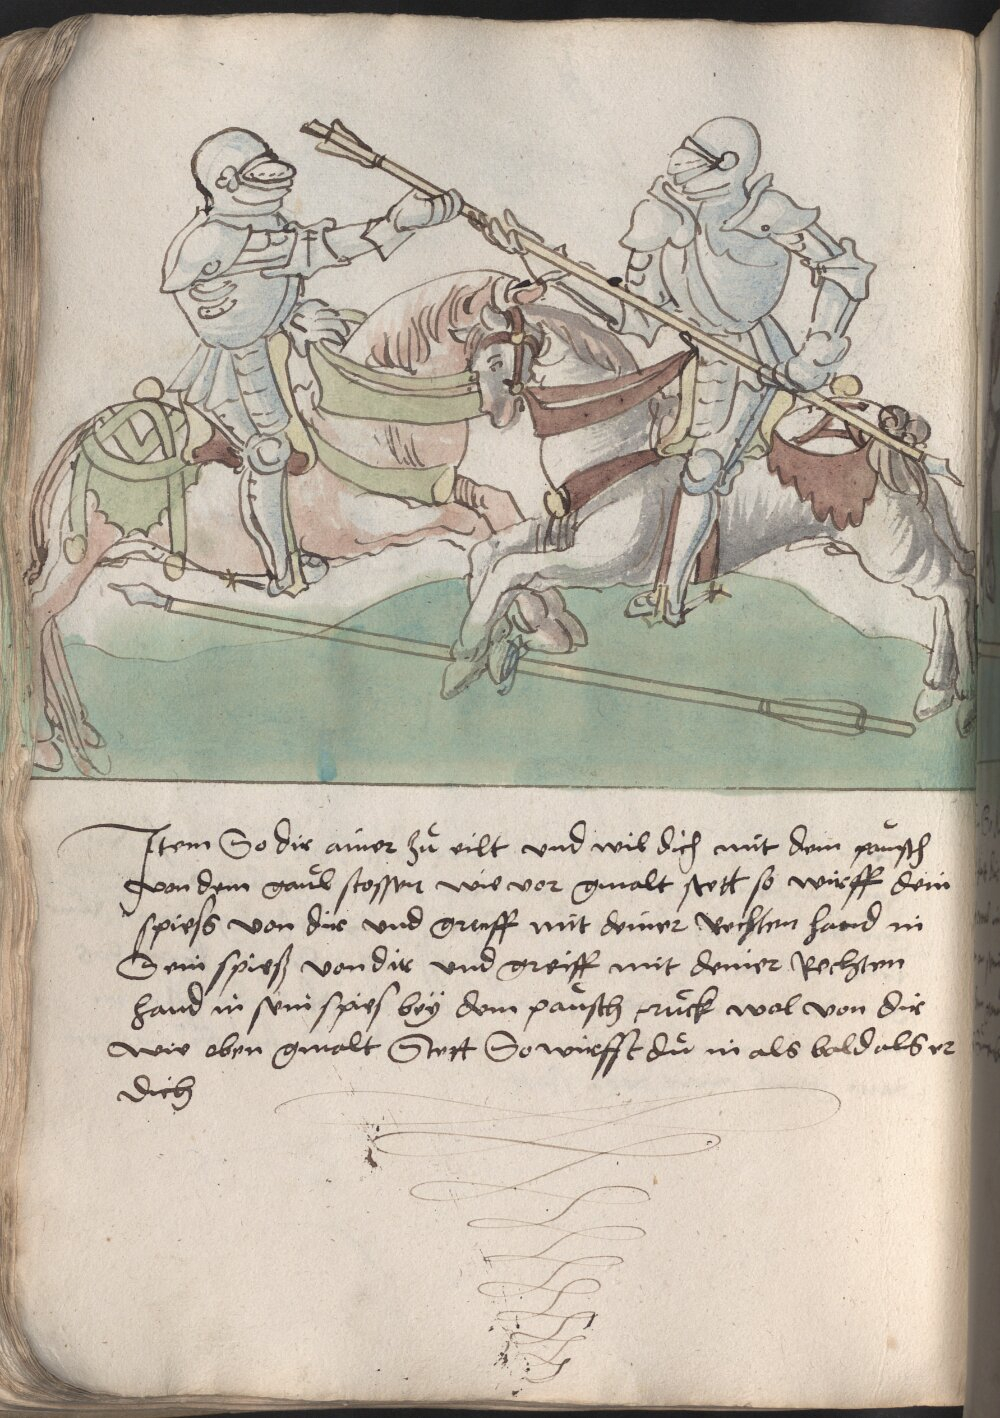 Item So dir ainer zů eilt und wil dich mit dem paŭsch
von dem gaŭl stossen wie vor gmalt stett so wirff dein
spiess von dir und greiff mit deiner Rechten hand in
Dein spieß von dir und greiff mit deiner Rechten
hand in sein spies bey dem paŭsch rŭck wol von dir
wie oben gmalt Stett So wirfft dŭ in als bald als er
dich